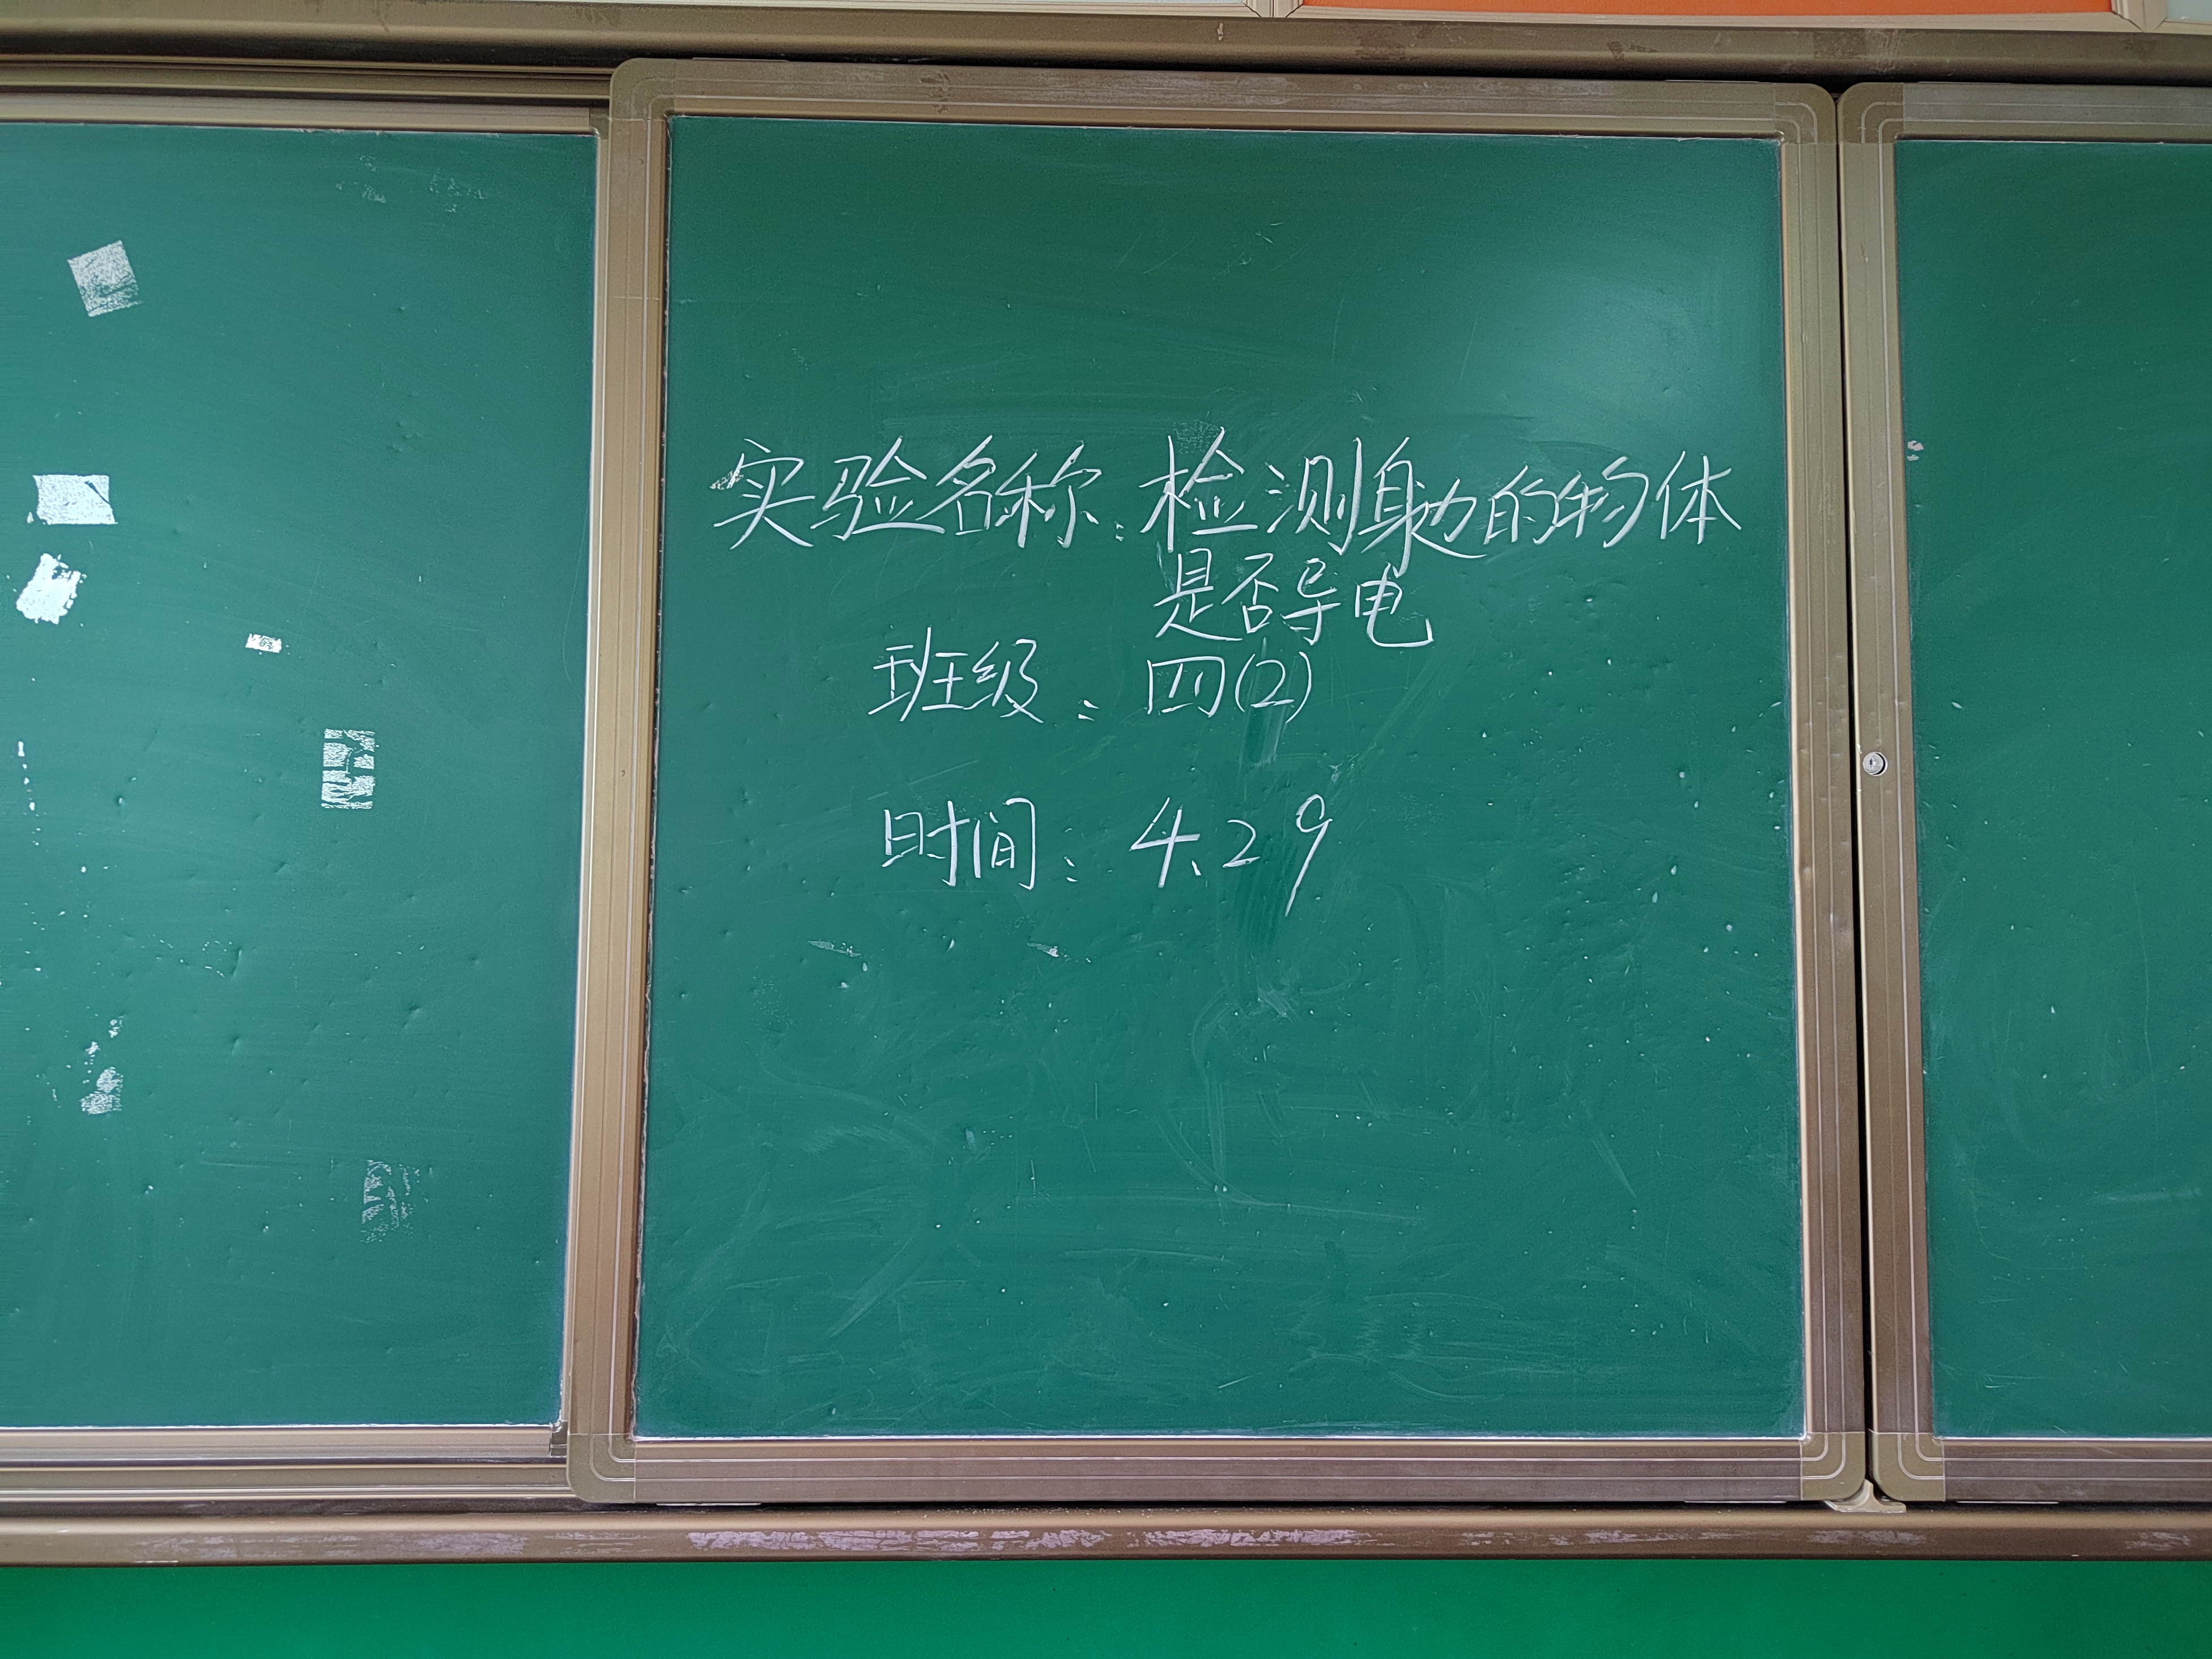 实验名称:检测身边的物体
是否导电
班级:四(2)
时间:4.29